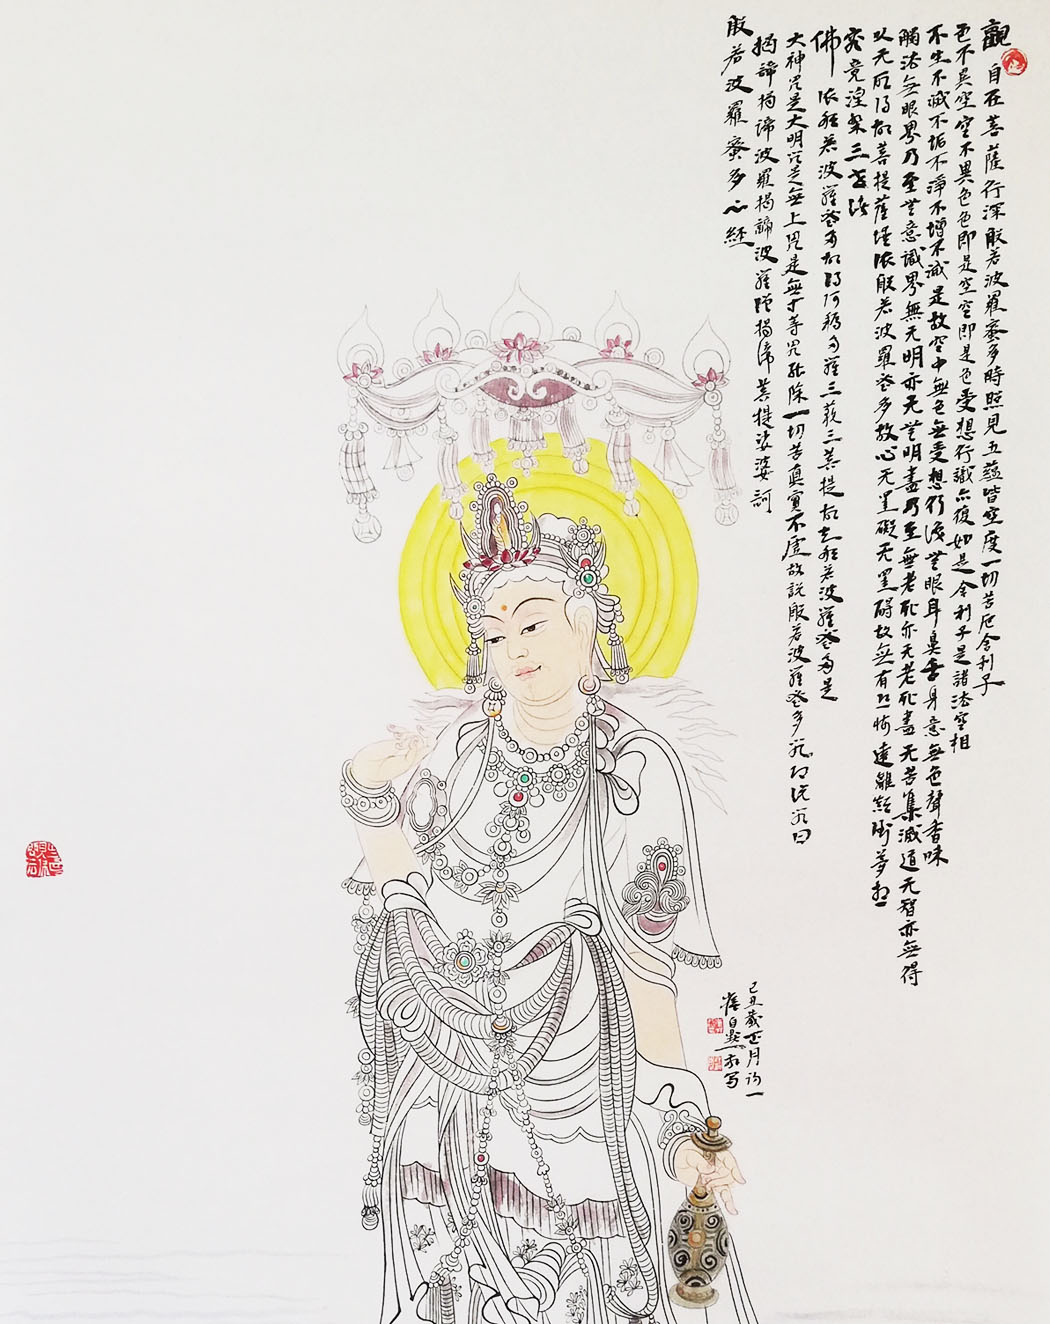 觀自在菩薩行深般若波羅蜜多時照見五蘊皆空度一切苦厄舍利子
色不異空空不異色色即是空空即是色受想行識亦復如是舍利子是諸法空相
不生不滅不垢不淨不增不減是故空中無色無受想行識無眼耳鼻舌身意無色聲香味
觸法無眼界乃至無意識界無无明亦无無明盡乃至無老死亦无老死盡无苦集滅道无智亦無得
以无所得故菩提薩埵依般若波羅蜜多故心无罣礙无罣碍故無有恐怖遠離顛倒夢想
究竟涅槃三世諸
佛依般若波羅蜜多故得阿耨多羅三藐三菩提故知般若波羅蜜多是
大神咒是大明咒是無上咒是無等等咒能除一切苦真實不虛故説般若波羅蜜多咒即説咒曰
揭諦揭諦波羅揭諦波羅僧揭諦菩提娑婆訶
般若波羅蜜多心經
己丑歲正月初一
白敬写